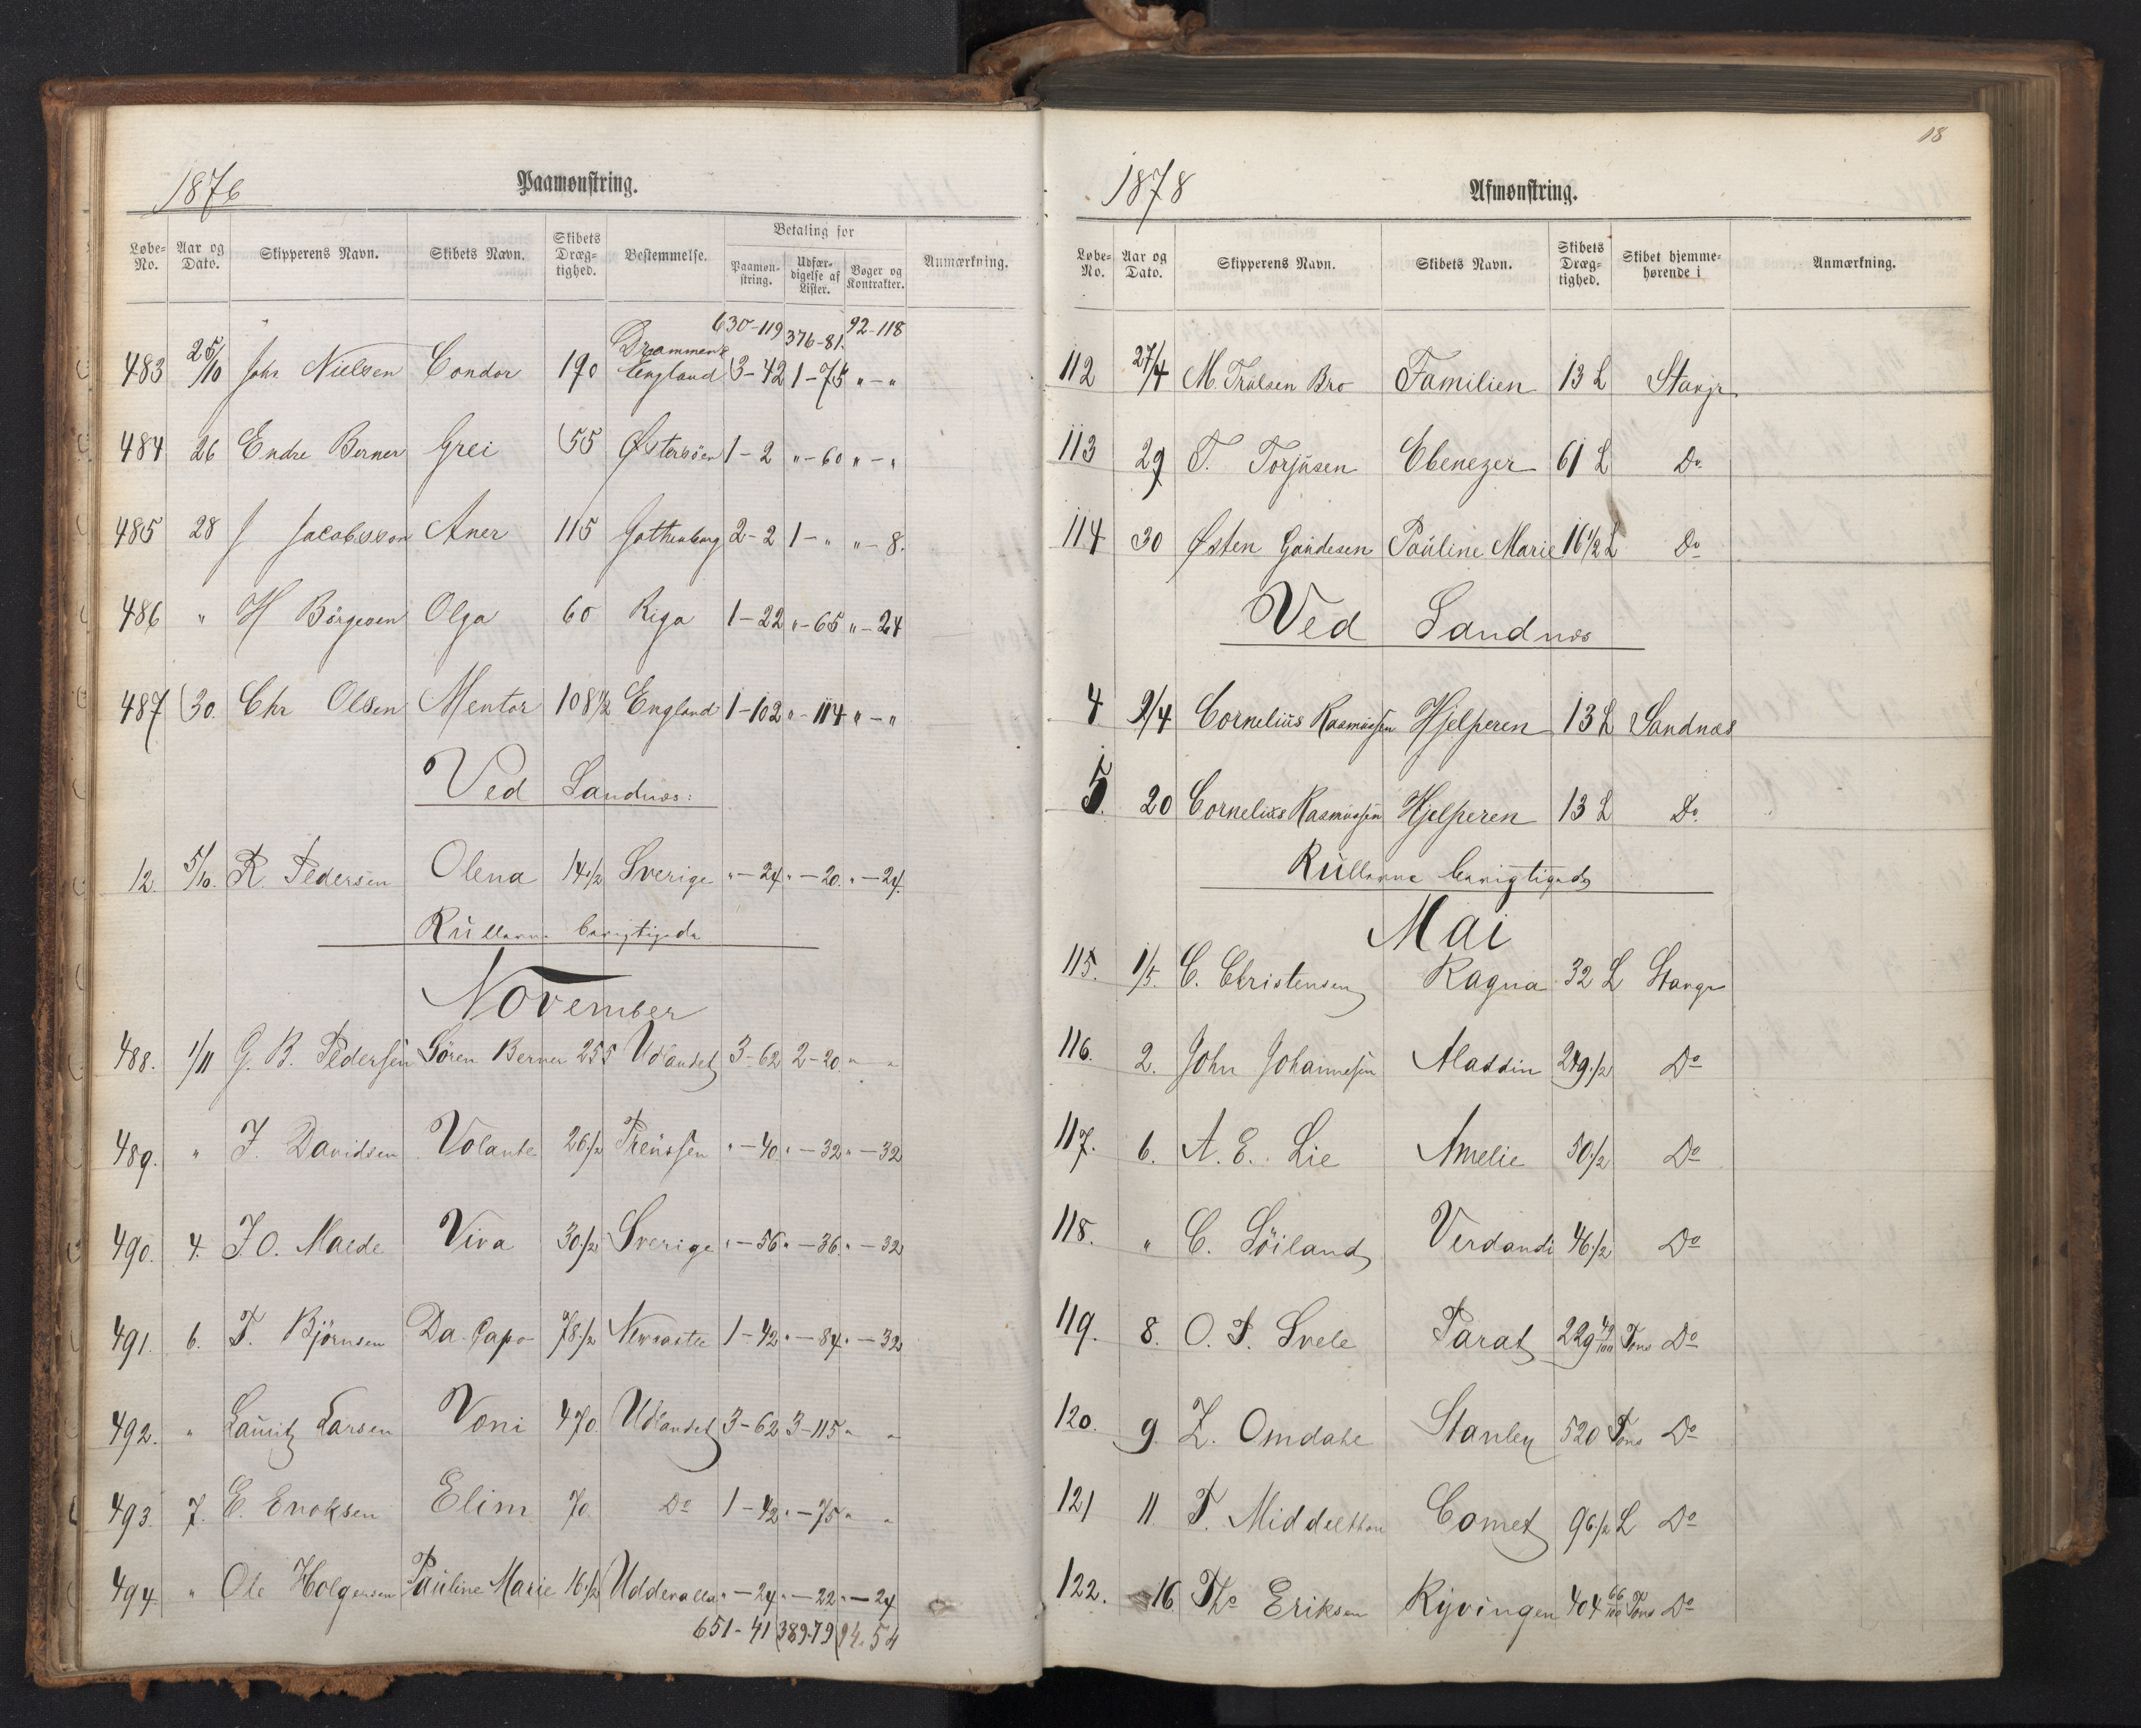 1876
Paamønstring.
Løbe-No. Aar og Dato. Skipperens Navn. Skibets Navn. Skibets Dræg-tighed. Bestemmelse. Betaling for Paamøn-string. Udfær-digelse af Lister. Bøger og Kontrakter. Anmærkning.
630-119 376-81. 92-118
483 25/10 Johs Nielsen Condor 190 Drammen & England 3-42 1-75 "-"
484 26 Endre Berner Grei 55 Østersöen 1-2 "-60 "-"
485 28 J Jacobsson Aner 115 Gothenborg 2-2 1-" "-8.
486 " H Börgesen Olga 60 Riga 1-22 "-65 "-24
487 30. Chr Olsen Mentor 108 1/2 England 1-102 "-114 "-"
Ved Sandnæs:
12. 5/10. R. Pedersen Olena 14 1/2 Sverige "-24 "-20. "-24.
Rullerne berigtigede
November
488. 1/11 G. B. Pedersen Sören Berner 255 Udlandet 3-62 2-20 " "
489. " J. Davidsen Volante 26 1/2 Preussen "-40. "-32 "-32
490. 4. J. O. Malde Viva 30 1/2 Sverige "-56. "-36. "-32
491. 6. T. Björnsen Da Capo 78 1/2 Newcastle 1-42. "-84. "-32
492. " Lauritz Larsen Voni 470. Udlandet 3-62 3-115 " "
493. 7. E. Enoksen Elim 70. Do 1-42. "-75 " "
494. " Ole Holgersen Pauline Marie 16 1/2 Uddevalla "-24. "-22. "-24
651-41 389-79 94.54
18
1878
Afmønstring.
Løbe-No. Aar og Dato. Skipperens Navn. Skibets Navn. Skibets Dræg-tighed. Skibet hjemme-hørende i Anmærkning.
112 27/4 M. Trulsen Bro Familien 13 L Stavgr
113 29 T. Torjusen Ebenezer 61 L Do.
114 30 Østen Gaudesen Pauline Marie 16 1/2 L Do
Ved Sandnæs
4 9/4 Cornelius Rasmussen Hjelperen 13 L Sandnæs
5. 20 Cornelius Rasmussen Hjelperen 13 L Do.
Rullerne berigtigede
Mai
115. 1/5. C. Christensen Ragna 32 L Stavgr
116. 2. John Johannesen Aladdin 249 1/2 Do
117. 6. A. E. Lie Amelie 50 1/2 Do
118. " C. Söiland Verdandi 46 1/2 Do
119. 8. O. T. Svele Parat 229 49/100 Tons Do
120. 9. Z. Omdahl Stanley 520 Tons Do
121 11. T. Middelthon Comet 96 1/2 L Do
122. 16. Ths Eriksen Ryvingen 404 66/100 Tons Do